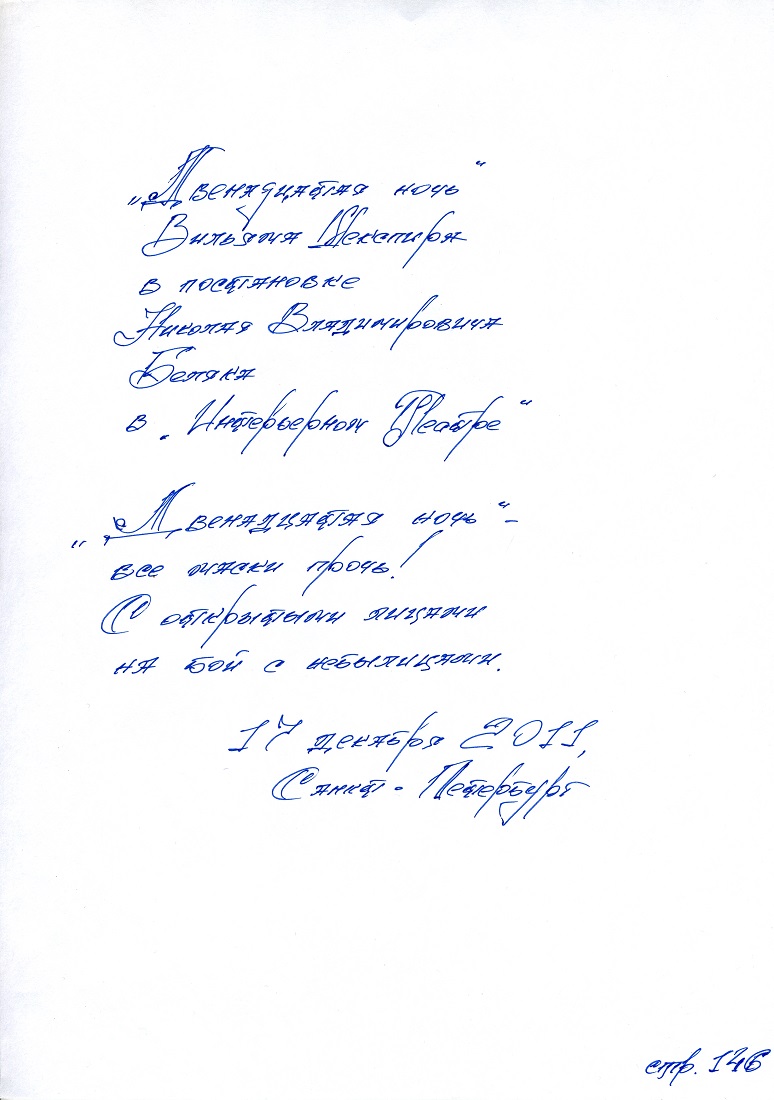 „Двенадцатая ночь“
Вильяма Шекспира
в постановке
Николая Владимировича
Беляка
в „Интерьерном Театре“
„Двенадцатая ночь“ –
все маски прочь!
С открытыми лицами
на бой с небылицами.
17 декабря 2011,
Санкт-Петербург
стр. 146